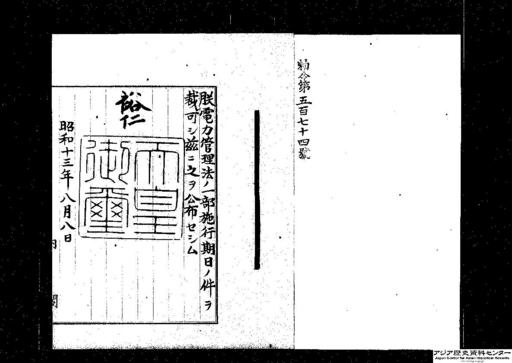 勅令第五百七十四號
朕電力管理法ノ一部施行期日ノ件ヲ
裁可シ玆ニ之ヲ公布セシム
裕仁
天皇御璽
昭和十三年八月八日
内閣
アジア歴史資料センター
Japan Center for Asian Historical Records